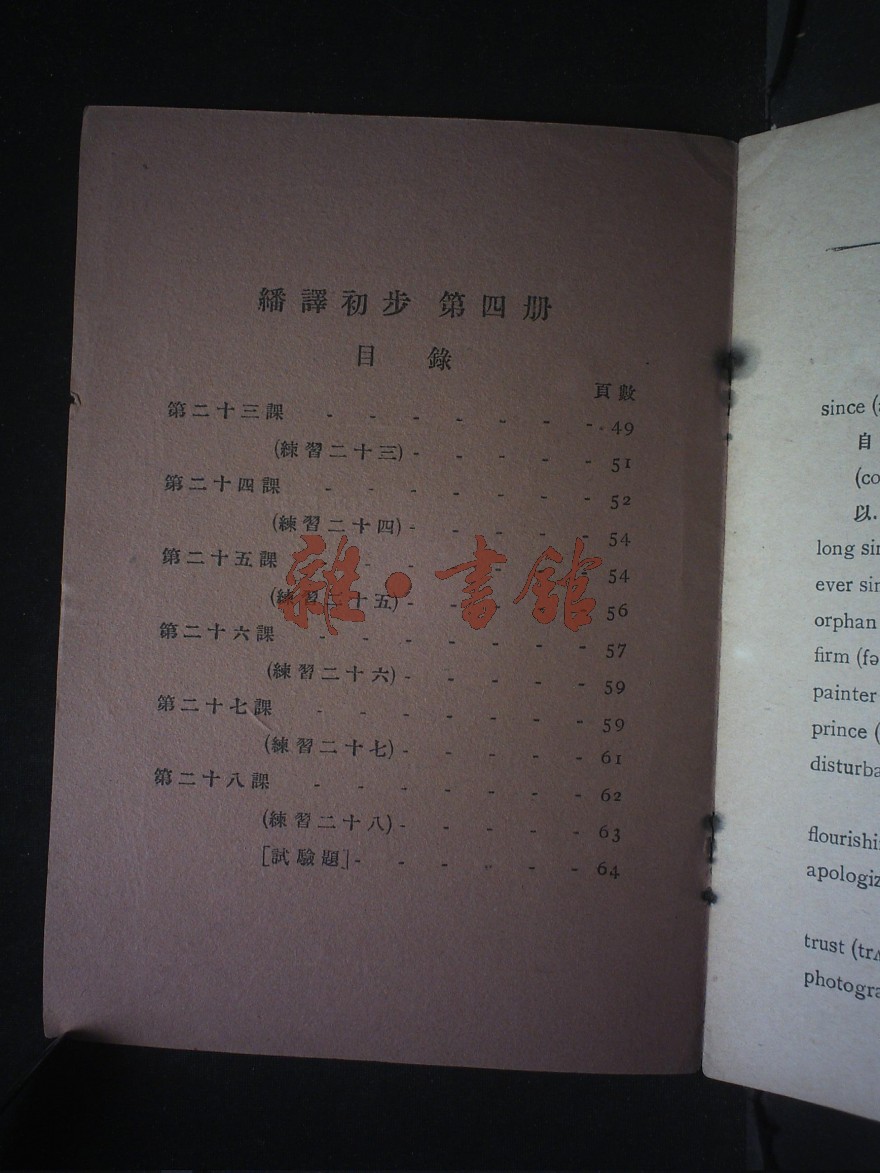 繙譯初步 第四册
目 錄
頁數
第二十三課 - - - - - - - 49
(練習二十三) - - - - - 51
第二十四課 - - - - - - - 52
(練習二十四) - - - - - 54
第二十五課 - - - - - - - 54
(練習二十五) - - - - - 56
第二十六課 - - - - - - - 57
(練習二十六) - - - - - 59
第二十七課 - - - - - - - 59
(練習二十七) - - - - - 61
第二十八課 - - - - - - - 62
(練習二十八) - - - - - 63
[試驗題] - - - - - - 64
雜·書館
since (
自
(co
以.
long sin
ever sin
orphan
firm (fə
painter
prince (
disturba
flourishi
apologiz
trust (trʌ
photogra